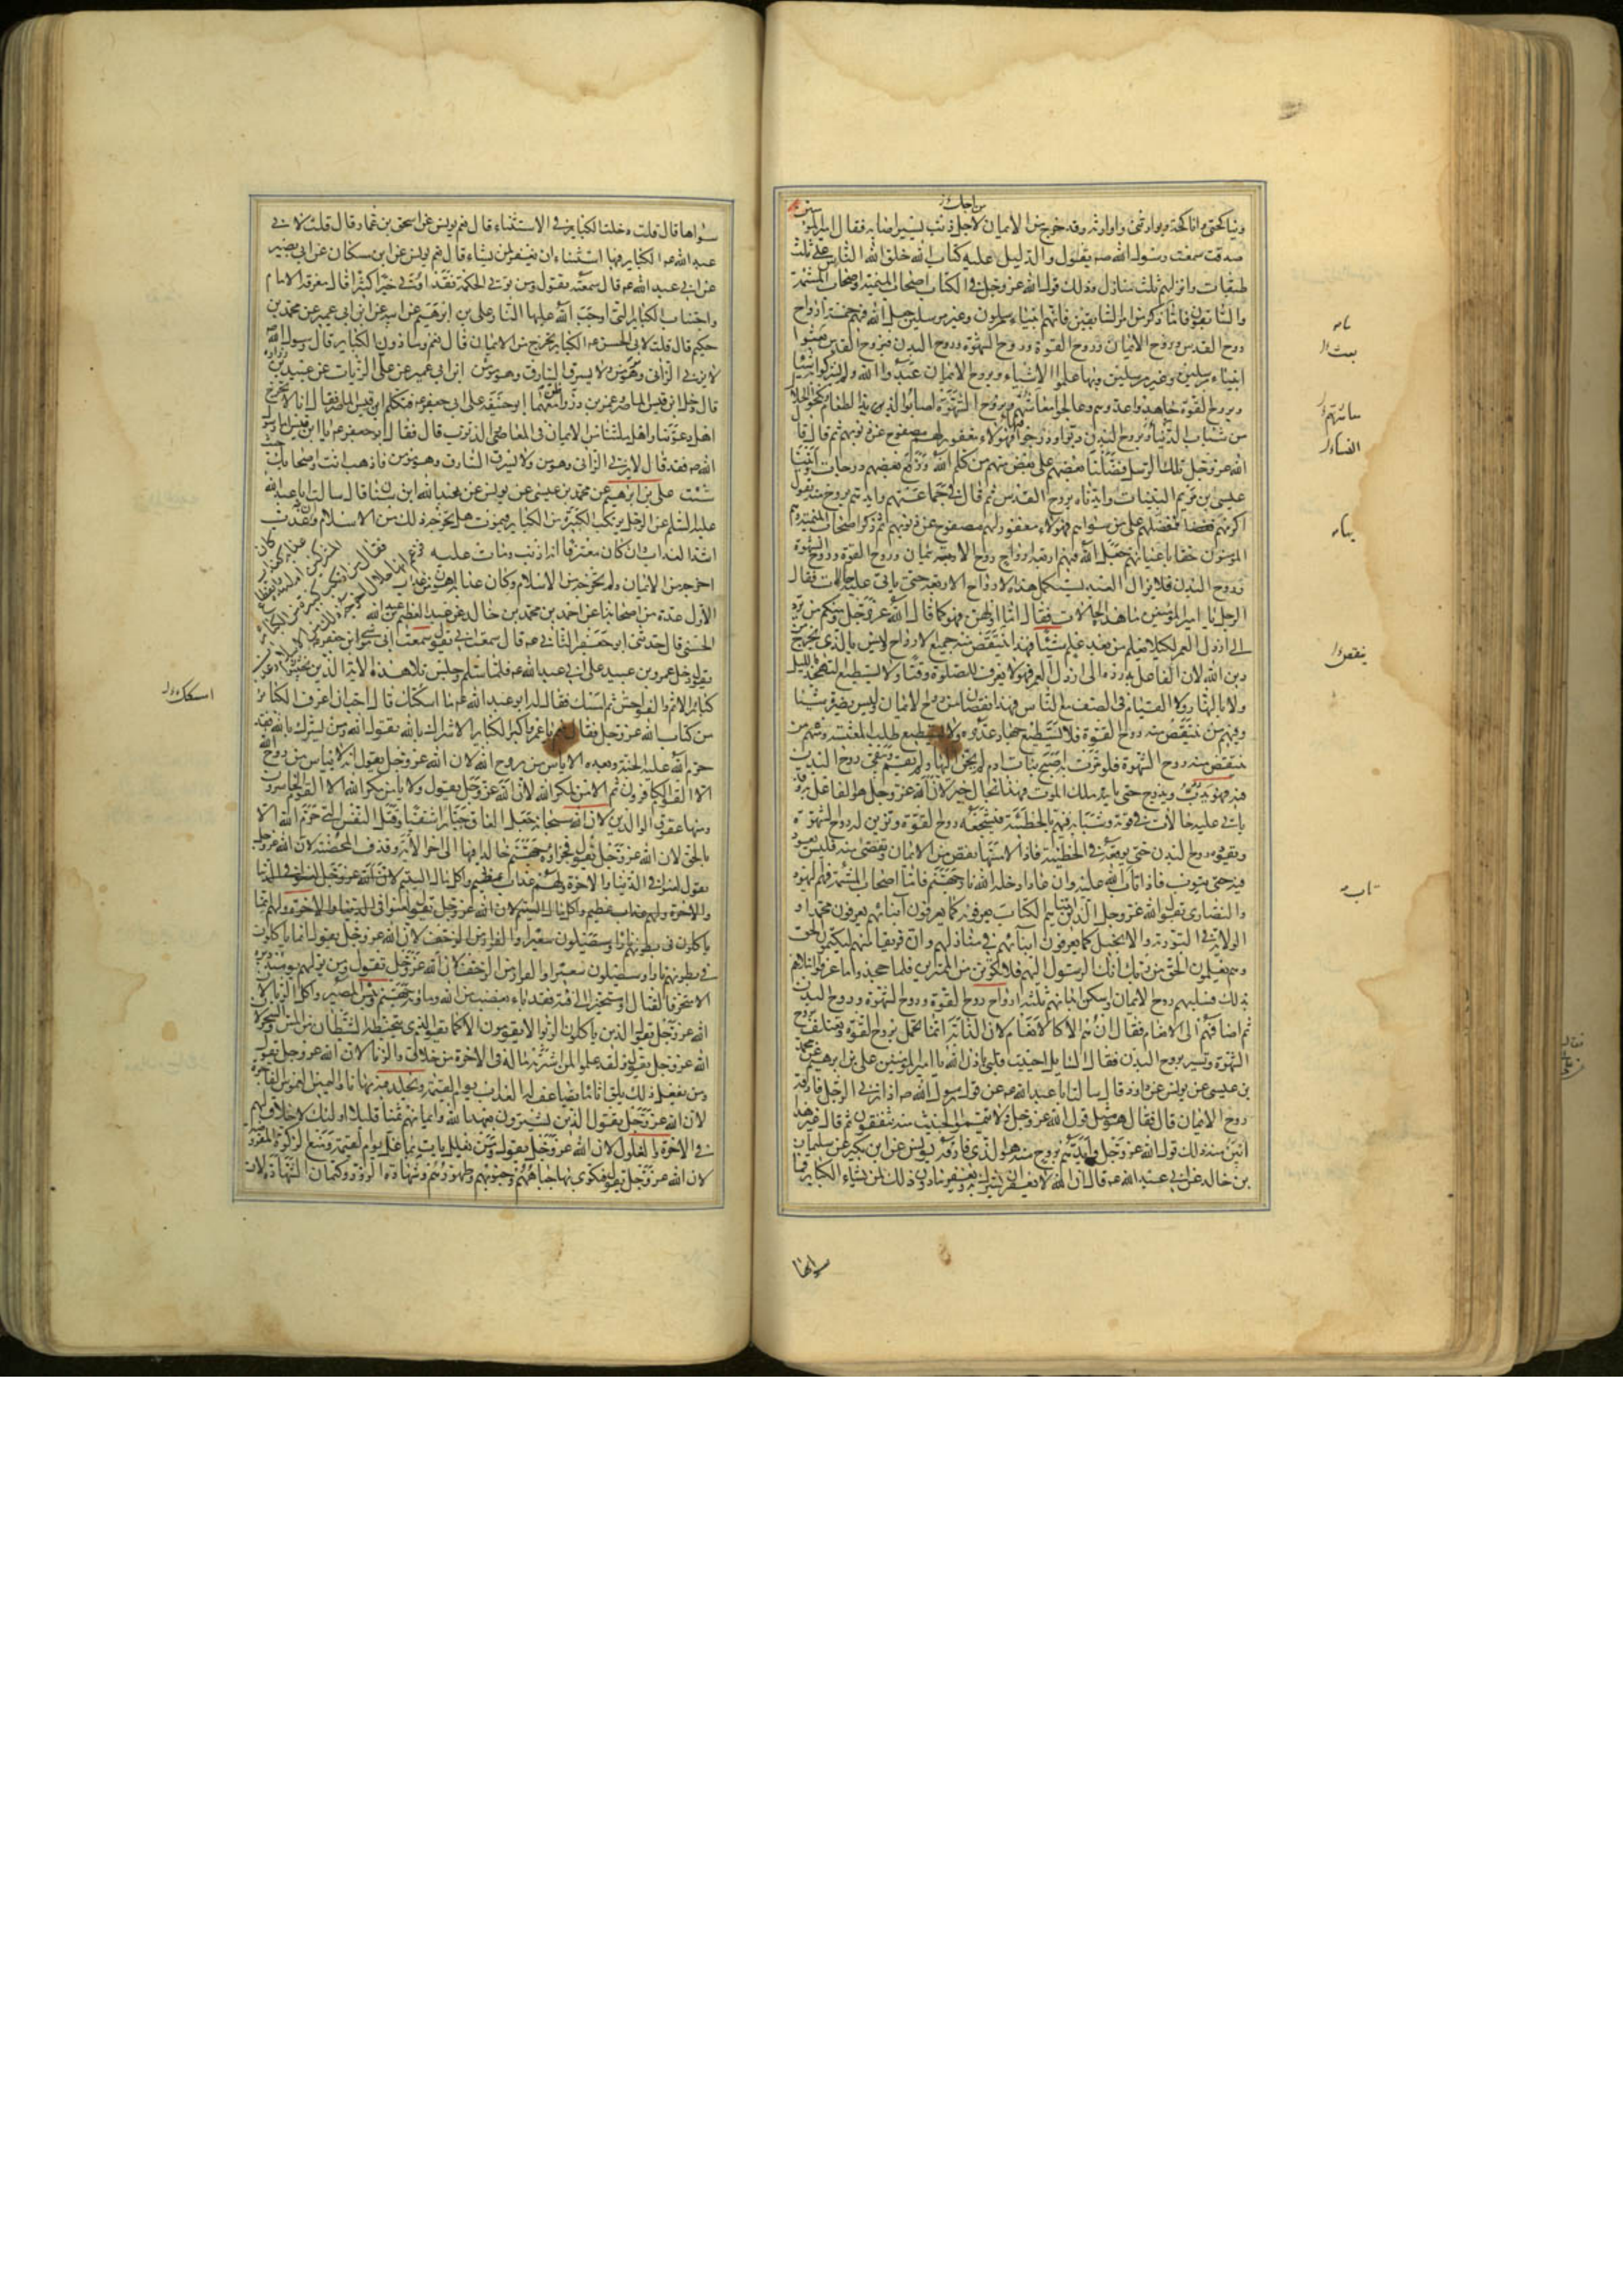 ويناكحني واناكحه ويوارثني واوارثه وقد خرج من الايمان لاجل ذنب يسير اصابه فقال امير المؤ
صدقت سمعت رسول الله صه يقول والدليل عليه كتاب الله خلق الله الناس على ثلث
طبقات وانزلهم ثلث منازل وذلك قول الله عز وجل في الكتاب اصحاب الميمنة واصحاب المشئمة
والسابقون فاما ما ذكر من امر السابقين فانهم انبياء مرسلون وغير مرسلين جعل الله فيهم خمسة ارواح
روح القدس وروح الايمان وروح القوة وروح الشهوة وروح البدن فبروح القدس بعثوا
انبياء مرسلين وغير مرسلين وبها علموا الاشياء وبروح الايمان عبدوا الله ولم يشركوا به شيئا
وبروح القوة جاهدوا عدوهم وعالجوا معاشهم وبروح الشهوة اصابوا لذيذ الطعام ونكحوا الحلال
من شباب النساء وبروح البدن دبوا ودرجوا فهؤلاء مغفور لهم مصفوح عن ذنوبهم ثم قال قال
الله عز وجل تلك الرسل فضلنا بعضهم على بعض منهم من كلم الله ورفع بعضهم درجات واتينا
عيسى بن مريم البينات وايدناه بروح القدس ثم قال في جماعتهم وايدهم بروح منه يقول
اكرمهم بها ففضلهم على من سواهم فهؤلاء مغفور لهم مصفوح عن ذنوبهم ثم ذكر اصحاب الميمنة وهم
المؤمنون حقا باعيانهم جعل الله فيهم اربعة ارواح روح الايمان وروح القوة وروح الشهوة
وروح البدن فلا يزال العبد يستكمل هذه الارواح الاربعة حتى ياتي عليه حالات فقال
الرجل يا امير المؤمنين ما هذه الحالات فقال اما اولهن فهو كما قال الله عز وجل ومنكم من يرد
الى ارذل العمر لكيلا يعلم من بعد علم شيئا فهذا ينتقص منه جميع الارواح وليس بالذي يخرج من
دين الله لان الفاعل به رده الى ارذل العمر فهو لا يعرف للصلوة وقتا ولا يستطيع التهجد بالليل
ولا بالنهار ولا القيام في الصف مع الناس فهذا نقصان من روح الايمان وليس يضره شيئا
وفيهم من ينتقص منه روح القوة فلا يستطيع جهاد عدوه ولا يستطيع طلب المعيشة ومنهم من
ينتقص منه روح الشهوة فلو مرت به اصبح بنات ادم لم يحن اليها ولم يقم وتبقى روح البدن
فيه فهو يدب ويدرج حتى ياتيه ملك الموت فهذا بحال خير لان الله عز وجل هو الفاعل به وقد
ياتي عليه حالات في قوته وشبابه فيهم بالخطيئة فيشجعه روح القوة ويزين له روح الشهوة
ويقوده روح البدن حتى يوقعه في الخطيئة فاذا لامسها نقص من الايمان وتفصى منه فليس يعود
فيه حتى يتوب فاذا تاب الله عليه وان عاد ادخله الله نار جهنم فاما اصحاب المشئمة فهم اليهود
والنصارى يقول الله عز وجل الذين اتيناهم الكتاب يعرفونه كما يعرفون ابناءهم يعرفون محمدا و
الولاية في التورية والانجيل كما يعرفون ابناءهم في منازلهم وان فريقا منهم ليكتمون الحق
وهم يعلمون الحق من ربك انك الرسول اليهم فلا تكونن من الممترين فلما جحدوا ما عرفوا ابتلاهم
بذلك فسلبهم روح الايمان واسكن ابدانهم ثلثة ارواح روح القوة وروح الشهوة وروح البدن
ثم اضافهم الى الانعام فقال ان هم الا كالانعام لان الدابة انما تحمل بروح القوة وتعتلف بروح
الشهوة وتسير بروح البدن فقال السايل احييت قلبي باذن الله يا امير المؤمنين علي بن ابرهيم عن محمد
بن عيسى عن يونس عن داود قال سالت ابا عبد الله عه عن قول رسول الله صه اذا زنى الرجل فارقه
روح الايمان قال فقال هو مثل قول الله عز وجل ولا تيمموا الخبيث منه تنفقون ثم قال غير هذا
ابين منه ذلك قول الله عز وجل وايدهم بروح منه هو الذي فارقه يونس عن ابن بكير عن سليمان
بن خالد عن ابي عبد الله عه قال ان الله لا يغفر ان يشرك به ويغفر ما دون ذلك لمن يشاء الكباير فما
سواها
سواها قال قلت دخلت الكباير في الاستثناء قال نعم يونس عن اسحق بن عمار قال قلت لابي
عبد الله عه الكباير فيها استثناء ان يغفر لمن يشاء قال نعم يونس عن ابن مسكان عن ابي بصير
عن ابي عبد الله عه قال سمعته يقول ومن يؤت الحكمة فقد اوتي خيرا كثيرا قال معرفة الامام
واجتناب الكباير التي اوجب الله عليها النار علي بن ابرهيم عن ابيه عن ابن ابي عمير عن محمد بن
حكيم قال قلت لابي الحسن عه الكباير تخرج من الايمان قال نعم وما دون الكباير قال رسول الله صه
لا يزني الزاني وهو مؤمن ولا يسرق السارق وهو مؤمن ابن ابي عمير عن علي الزيات عن عبيد بن زرارة
قال دخل ابن قيس الماصر وعمر بن ذر واظن معهما ابو حنيفة على ابي جعفر عه فتكلم ابن قيس الماصر فقال انا لا نخرج
اهل دعوتنا واهل ملتنا من الايمان في المعاصي والذنوب قال فقال له ابو جعفر عه يا ابن قيس اما رسول
الله صه فقد قال لا يزني الزاني وهو مؤمن ولا يسرق السارق وهو مؤمن فاذهب انت واصحابك حيث
شئت علي بن ابرهيم عن محمد بن عيسى عن يونس عن عبد الله ابن سنان قال سالت ابا عبد الله
عليه السلم عن الرجل يرتكب الكبيرة من الكباير فيموت هل يخرجه ذلك من الاسلام وان عذب كان
فقال من ارتكب كبيرة من الكبائر
فزعم انها حلال اخرجه ذلك من الاسلام وعذب
اشد العذاب وان كان معترفا انه اذنب ومات عليه
اخرجه من الايمان ولم يخرجه من الاسلام وكان عذابه اهون من عذاب
الاول عدة من اصحابنا عن احمد بن محمد بن خالد عن عبد العظيم بن عبد الله
الحسني قال حدثني ابو جعفر الثاني عه قال سمعت ابي يقول سمعت ابي موسى بن جعفر عه
يقول دخل عمرو بن عبيد على ابي عبد الله عه فلما سلم وجلس تلا هذه الاية الذين يجتنبون
كبائر الاثم والفواحش ثم امسك فقال له ابو عبد الله عه ما اسكتك قال احب ان اعرف الكبائر
من كتاب الله عز وجل فقال نعم يا عمرو اكبر الكباير الاشراك بالله يقول الله ومن يشرك بالله فقد
حرم الله عليه الجنة وبعده الاياس من روح الله لان الله عز وجل يقول انه لا يياس من روح الله
الا القوم الكافرون ثم الامن لمكر الله لان الله عز وجل يقول ولا يامن مكر الله الا القوم الخاسرون
ومنها عقوق الوالدين لان الله سبحانه جعل العاق جبارا شقيا وقتل النفس التي حرم الله الا
بالحق لان الله عز وجل يقول فجزاؤه جهنم خالدا فيها الى اخر الاية وقذف المحصنة لان الله عز وجل
يقول لعنوا في الدنيا والاخرة ولهم عذاب عظيم واكل مال اليتيم لان الله عز وجل
والاخرة ولهم عذاب عظيم واكل مال اليتيم لان الله عز وجل يقول
ياكلون في بطونهم نارا وسيصلون سعيرا والفرار من الزحف لان الله عز وجل يقول انما ياكلون
في بطونهم نارا وسيصلون سعيرا والفرار من الزحف لان الله عز وجل يقول ومن يولهم يومئذ دبره
الا متحرفا لقتال او متحيزا الى فئة فقد باء بغضب من الله وماويه جهنم وبئس المصير واكل الربا لان
الله عز وجل يقول الذين ياكلون الربوا لا يقومون الا كما يقوم الذي يتخبطه الشيطان من المس والسحر لان
الله عز وجل يقول ولقد علموا لمن اشتريه ما له في الاخرة من خلاق والزنا لان الله عز وجل يقول
ومن يفعل ذلك يلق اثاما يضاعف له العذاب يوم القيمة ويخلد فيه مهانا واليمين الغموس الفاجرة
لان الله عز وجل يقول الذين يشترون بعهد الله وايمانهم ثمنا قليلا اولئك لا خلاق لهم
في الاخرة والغلول لان الله عز وجل يقول ومن يغلل يات بما غل يوم القيمة ومنع الزكوة المفروضة
لان الله عز وجل يقول فتكوى بها جباههم وجنوبهم وظهورهم وشهادة الزور وكتمان الشهادة لان